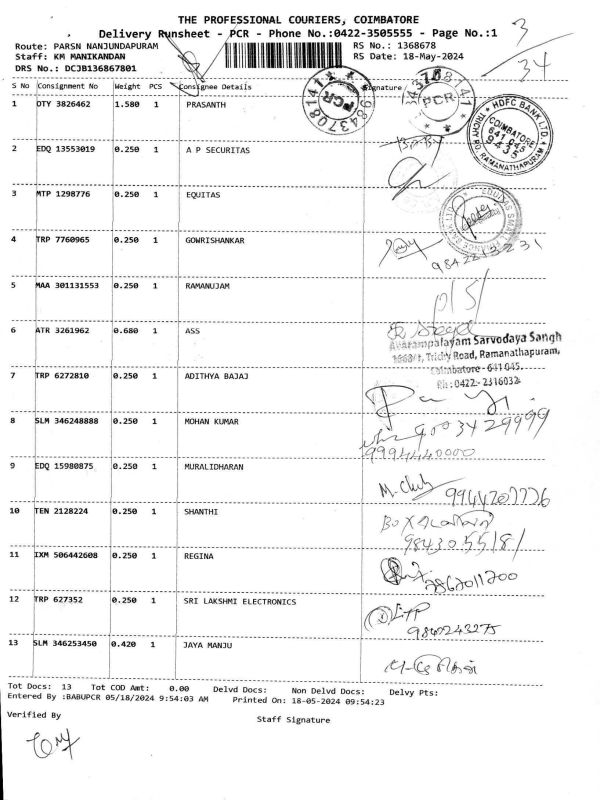 THE PROFESSIONAL COURIERS, COIMBATORE
Delivery Runsheet - PCR - Phone No.:0422-3505555 - Page No.:1
3/34
Route: PARSN NANJUNDAPURAM RS No.: 1368678
Staff: KM MANIKANDAN RS Date: 18-May-2024
DRS No.: DCJB136867801
S No Consignment No Weight PCS Consignee Details Signature
1 OTY 3826462 1.580 1 PRASANTH
9843708141 PCR
9843708141 PCR
HDFC BANK LTD. COIMBATORE 641 045 9435 TRICHY RD. RAMANATHAPURAM
2 EDQ 13553019 0.250 1 A P SECURITAS
3 MTP 1298776 0.250 1 EQUITAS
4 TRP 7760965 0.250 1 GOWRISHANKAR
9842213231
5 MAA 301131553 0.250 1 RAMANUJAM
6 ATR 3261962 0.680 1 ASS
Avarampalayam Sarvodaya Sangh
Trichy Road, Ramanathapuram,
Coimbatore - 641 045.
Ph : 0422 - 2316032
7 TRP 6272810 0.250 1 ADITHYA BAJAJ
8 SLM 346248888 0.250 1 MOHAN KUMAR
9003429999
9994440000
9 EDQ 15980875 0.250 1 MURALIDHARAN
9944207776
10 TEN 2128224 0.250 1 SHANTHI
9843055181
11 IXM 506442608 0.250 1 REGINA
7867011700
12 TRP 627352 0.250 1 SRI LAKSHMI ELECTRONICS
9840243275
13 SLM 346253450 0.420 1 JAYA MANJU
Tot Docs: 13 Tot COD Amt: 0.00 Delvd Docs: Non Delvd Docs: Delvy Pts:
Entered By :BABUPCR 05/18/2024 9:54:03 AM Printed On: 18-05-2024 09:54:23
Verified By
Staff Signature